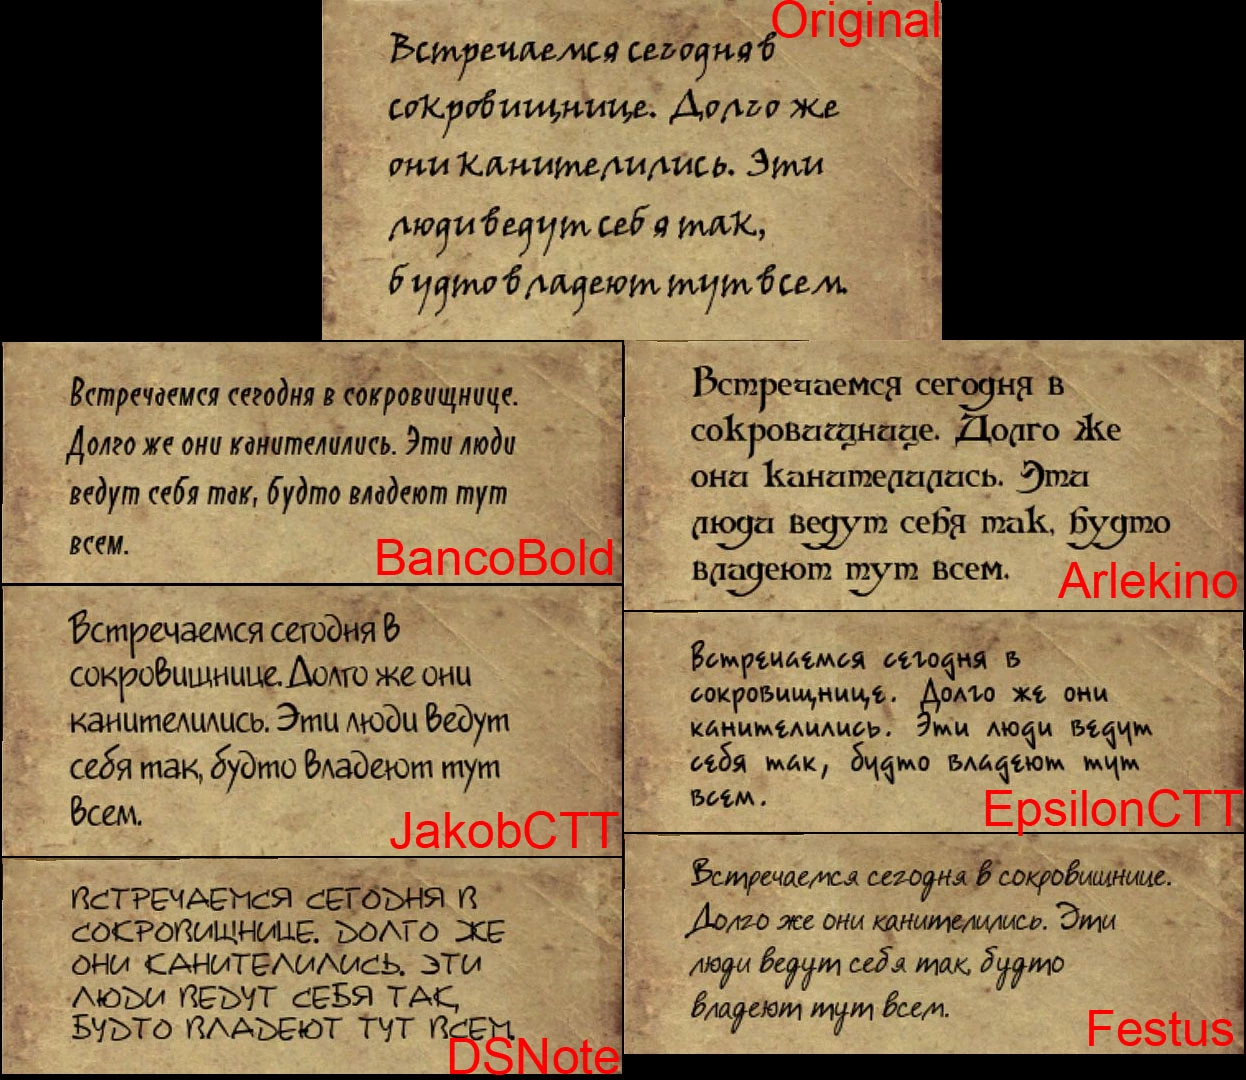 Original
Встречаемся сегодня в
сокровищнице. Долго же
они канителились. Эти
люди ведут себя так,
будто владеют тут всем.
Встречаемся сегодня в сокровищнице.
Долго же они канителились. Эти люди
ведут себя так, будто владеют тут
всем.
BancoBold
Встречаемся сегодня в
сокровищнице. Долго же
они канителились. Эти
люди ведут себя так, будто
владеют тут всем.
Arlekino
Встречаемся сегодня в
сокровищнице. Долго же они
канителились. Эти люди ведут
себя так, будто владеют тут
всем.
JakobCTT
Встречаемся сегодня в
сокровищнице. Долго же они
канителились. Эти люди ведут
себя так, будто владеют тут
всем.
EpsilonCTT
ВСТРЕЧАЕМСЯ СЕГОДНЯ В
СОКРОВИЩНИЦЕ. ДОЛГО ЖЕ
ОНИ КАНИТЕЛИЛИСЬ. ЭТИ
ЛЮДИ ВЕДУТ СЕБЯ ТАК,
БУДТО ВЛАДЕЮТ ТУТ ВСЕМ.
DSNote
Встречаемся сегодня в сокровищнице.
Долго же они канителились. Эти
люди ведут себя так, будто
владеют тут всем.
Festus